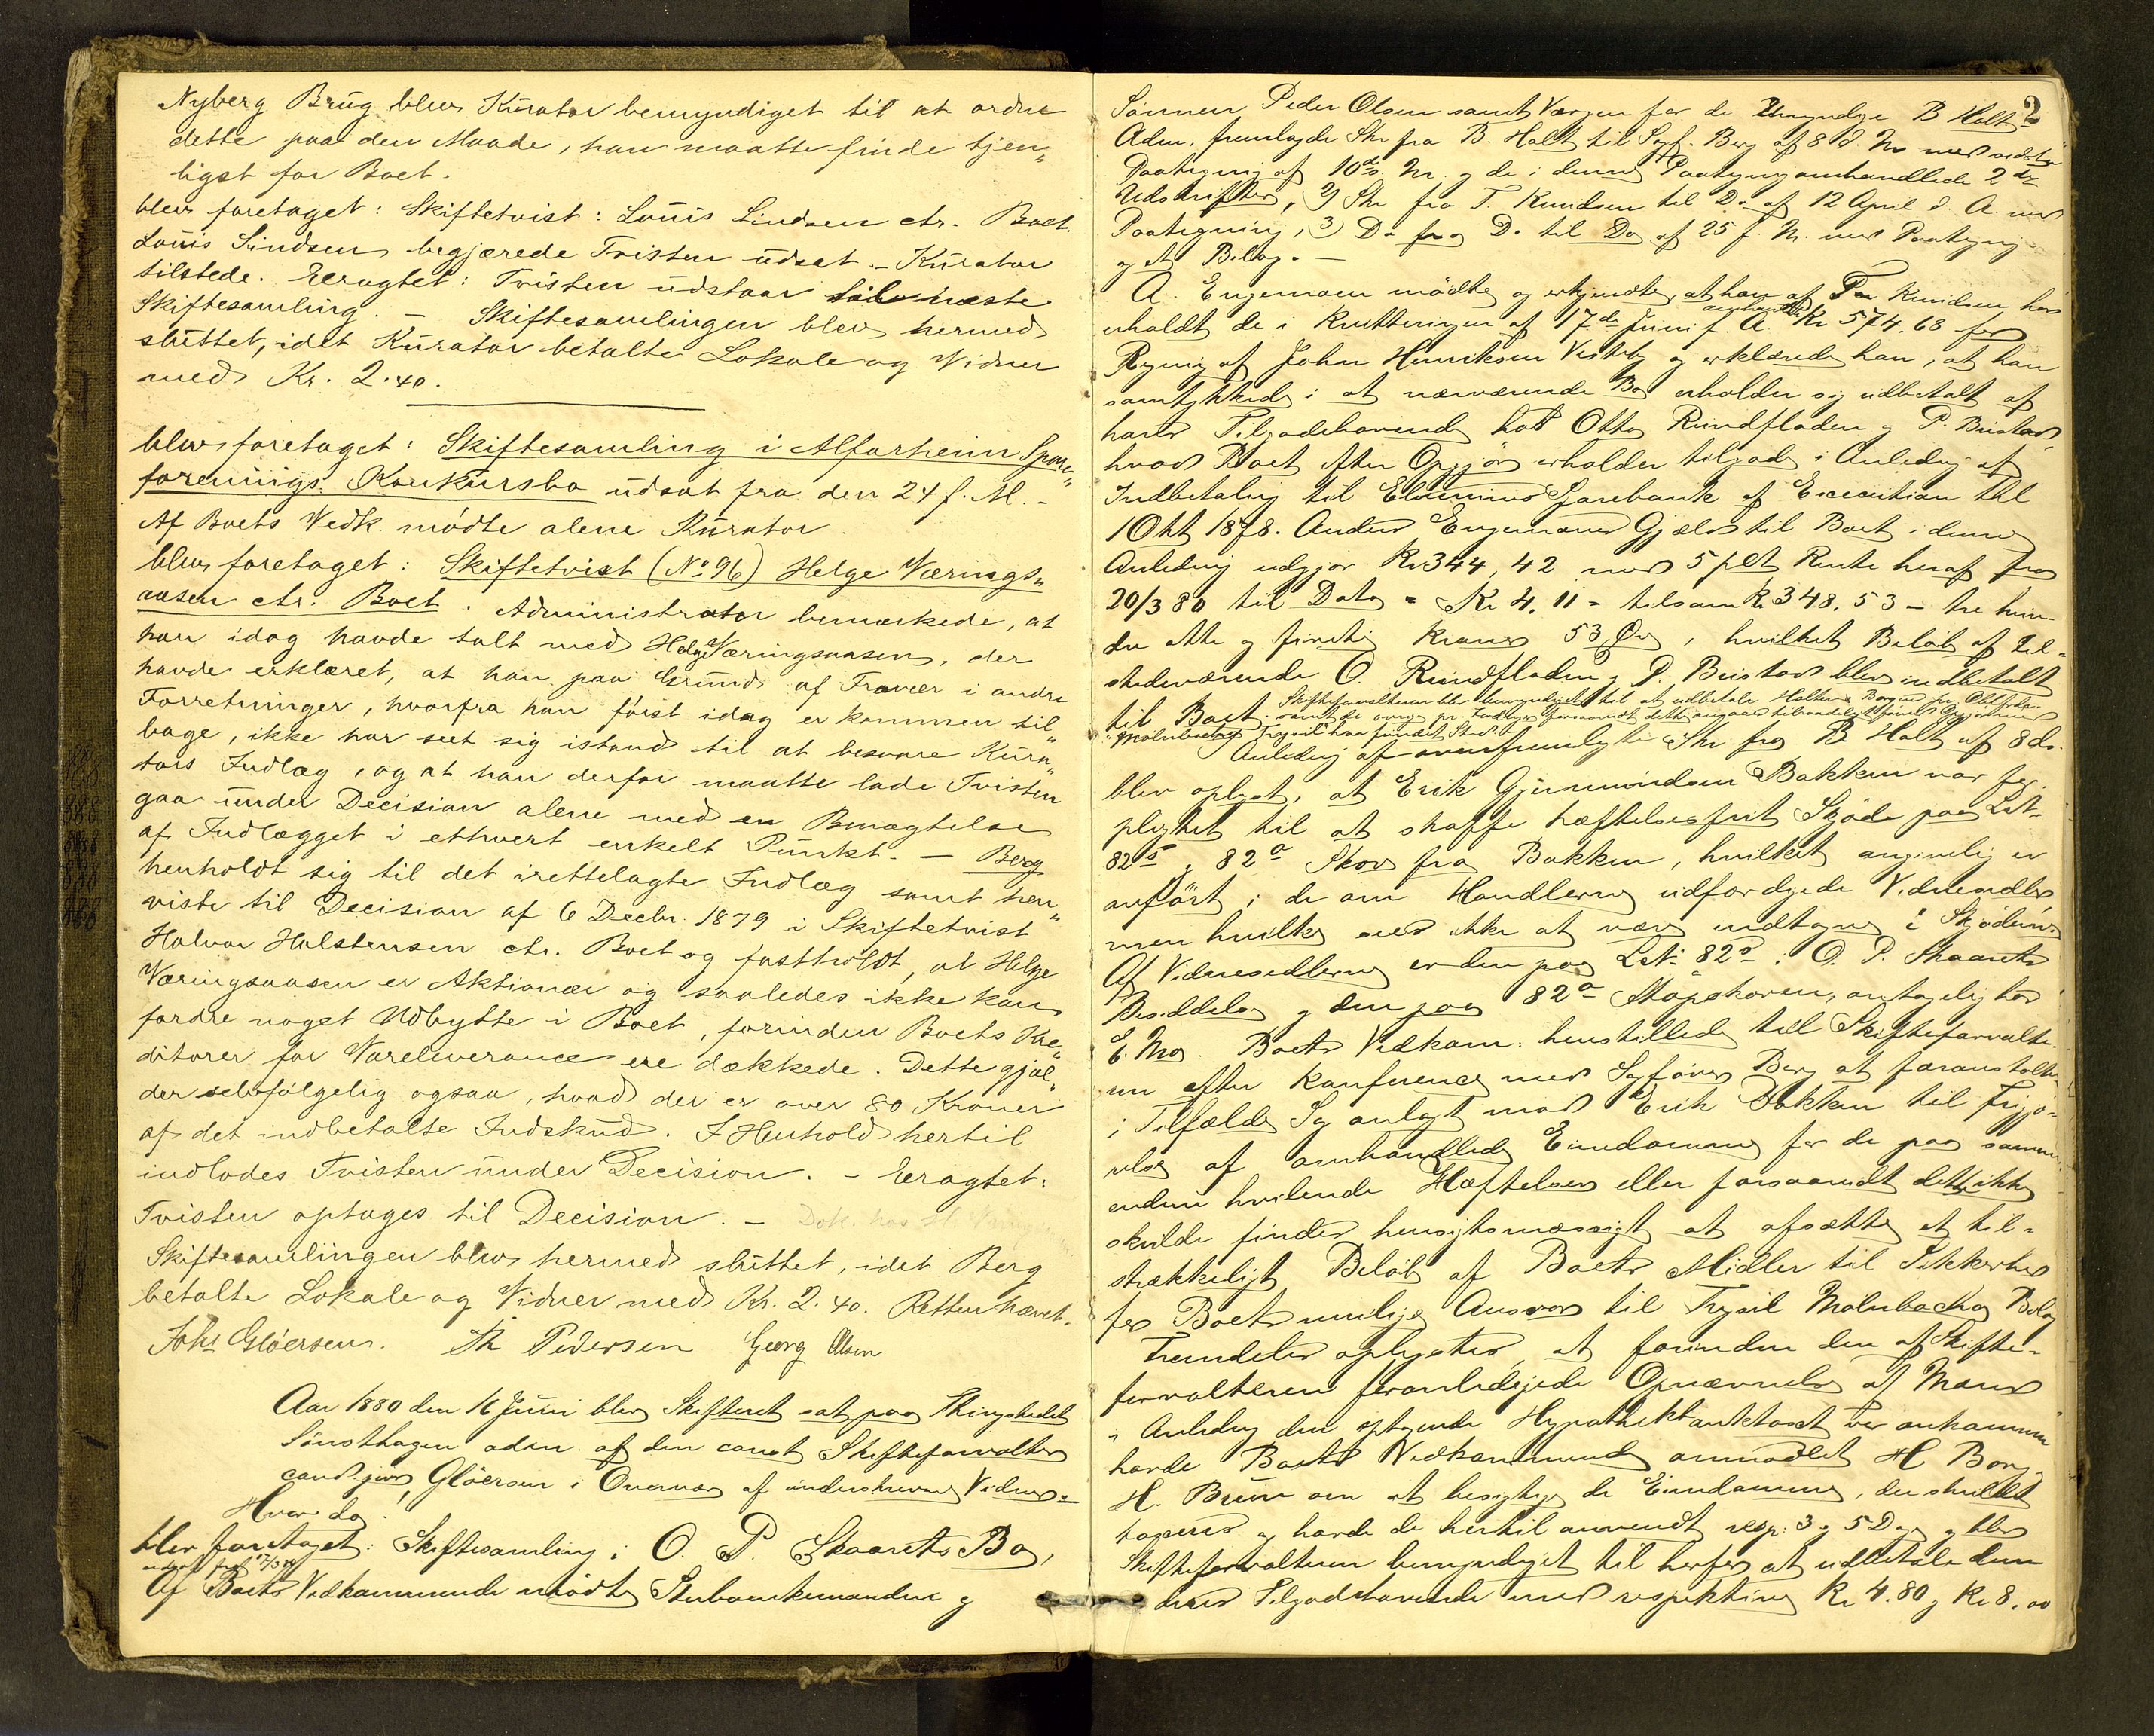 Nyberg Brug blev Kurator bemyndiget til at ordne
dette paa den Maade, han maatte finde tjen„
ligst for Boet.
blev foretaget: Skiftetvist: Louis Lindsen ctr. Boet.
Louis Lindsen begjærede Tvisten udsat. – Kurator
tilstede. Eragtet: Tvisten udstaar til næste
Skiftesamling. – Skiftesamlingen blev hermed
sluttet, idet Kurator betalte Lokale og Vidner
med Kr. 2.40.
blev foretaget: Skiftesamling i Alfarheim Spare„
forenings Konkursbo udsat fra den 24 f. M. –
Af Boets Vedk. mödte alene Kurator.
blev foretaget: Skiftetvist (No 96) Helge Værings„
aasen ctr. Boet. Administrator bemærkede, at
han idag havde talt med Helge Væringsaasen, der
havde erklæret, at han paa Grund af Fravær i andre
Forretninger, hvorfra han först idag er kommen til„
bage, ikke har seet sig istand til at besvare Kura„
tors Indlæg, og at han derfor maatte lade Tvisten
gaa under Decision alene med en Benægtelse
af Indlægget i ethvert enkelt Punkt. – Berg
henholdt sig til det irettelagte Indlæg samt hen„
viste til Decision af 6 Decbr. 1879 i Skiftetvist
Halvor Halstensen ctr. Boet og fastholdt, at Helge
Væringsaasen er Aktionær og saaledes ikke kan
fordre noget Udbytte i Boet, forinden Boets Kre„
ditorer for Vareleverance ere dækkede. Dette gjæl„
der selvfölgelig ogsaa, hvad der er over 80 Kroner
af det indbetalte Indskud. I Henhold hertil
indlodes Tvisten under Decision. – Eragtet:
Tvisten optages til Decision. –
Skiftesamlingen blev hermed sluttet, idet Berg
betalte Lokale og Vidner med Kr. 2.40. Retten hævet.
Johs Glöersen. Th Pedersen Georg Olsen
Aar 1880 den 16 Juni blev Skifteret sat paa Thingstedet
Sönsthagen adm. af den const Skifteforvalter
cand. jur. Glöersen i Overvær af underskrevne Vidner –
Hvor da!
blev foretaget: Skiftesamling i O. P. Skaarets Bo,
udsat fra 17/3 80
Af Boets Vedkommende mödte Stervboenkemanden og
2
Sönnen Peder Olsen samt Værgen for de Umyndige B Holt
Adm. fremlagde Skr fra B. Holt til Sagf. Berg af 8 d. M. med sidste
Paategning af 10 ds. M. og de i denne Paategning omhandlede 2de
Udskrifter, 2) Skr fra T. Knudsen til Do af 12 April d. A. med
Paategning, 3) Do fra Do til Do af 25 f. M. med Paategning
og et Bilag. –
A. Engemoen mödte og erkjendte, at han af Tor Knudsen har
erholdt de i Kvitteringen af 17de Juni f. A. omhandlede Kr 574.68 for
Regning af John Henriksen Vestby og erklærede han, at han
samtykkede i at nærværende Bo erholder sig udbetalt af
hans Tilgodehavende hos Otto Rundfloden og P. Bristad
hvad Boet efter Opgjör erholder tilgode i Anledning af
Indbetaling til Elverums Sparebank af Execution til
1 Okt 1878. Anders Engemoens Gjæld til Boet i denne
Anledning udgjör Kr 344,42 med 5 pCt Rente heraf fra
20/3 80 til Dato = Kr 4,11 = tilsam Kr 348.53 – tre hun-
dre otte og firetig Kroner 53 Öre, hvilket Belöb af til-
stedeværende O. Rundfloden og P. Bristad blev indbetalt
til Boet.
Skifteforvalteren blev bemyndiget til at udbetale Holter &
Anledning af Skr fra B Holt af 8 ds.
blev oplyst, at Erik Gjermundsen Bakken var for-
pligtet til at skaffe hæftelsesfrit Skjöde paa Lit-
82 og 82a Skov fra Bakken, hvilket angivelig er
anfört i de om Handlerne udfærdigede Vidnesedler
men hvilke ikke at være indtagne i Skjöderne
Af Vidnesedlerne er den paa 82 i O. P. Skaarets
Besiddelse og den paa 82a antagelig hos
E. Mo. Boets Vedkom. henstillede til Skifteforvalte-
ren efter Konference med Sagförer Berg at foranstalte
i Tilfælde Sag anlagt mod Erik Bakken til Frigjö-
relse af omhandlede Eiendomme for de paa samme
endnu hvilende Hæftelser eller forsaavidt dette ikke
skulde findes hensigtsmæssigt at afsætte et til-
strækkeligt Belöb af Boets Midler til Sikkerhed
for Boets mulige Ansvar til Trysil Molnbacka Bolag
Fremdeles oplystes, at forinden den af Skifte-
forvalteren foranledigede Opnævnelse af Mænd
i Anledning den optagende Hypothektaxt var ankommen
havde Boets Vedkommende anmodet H Borg
H. Bruun om at besigtige de Eiendomme, der skulde
taxeres og havde de hertil anvendt resp. 3 og 5 Dage og blev
Skifteforvalteren bemyndiget til herfor at udbetale dem
deres Tilgodehavende med respektive Kr 4.80 og Kr 8.00